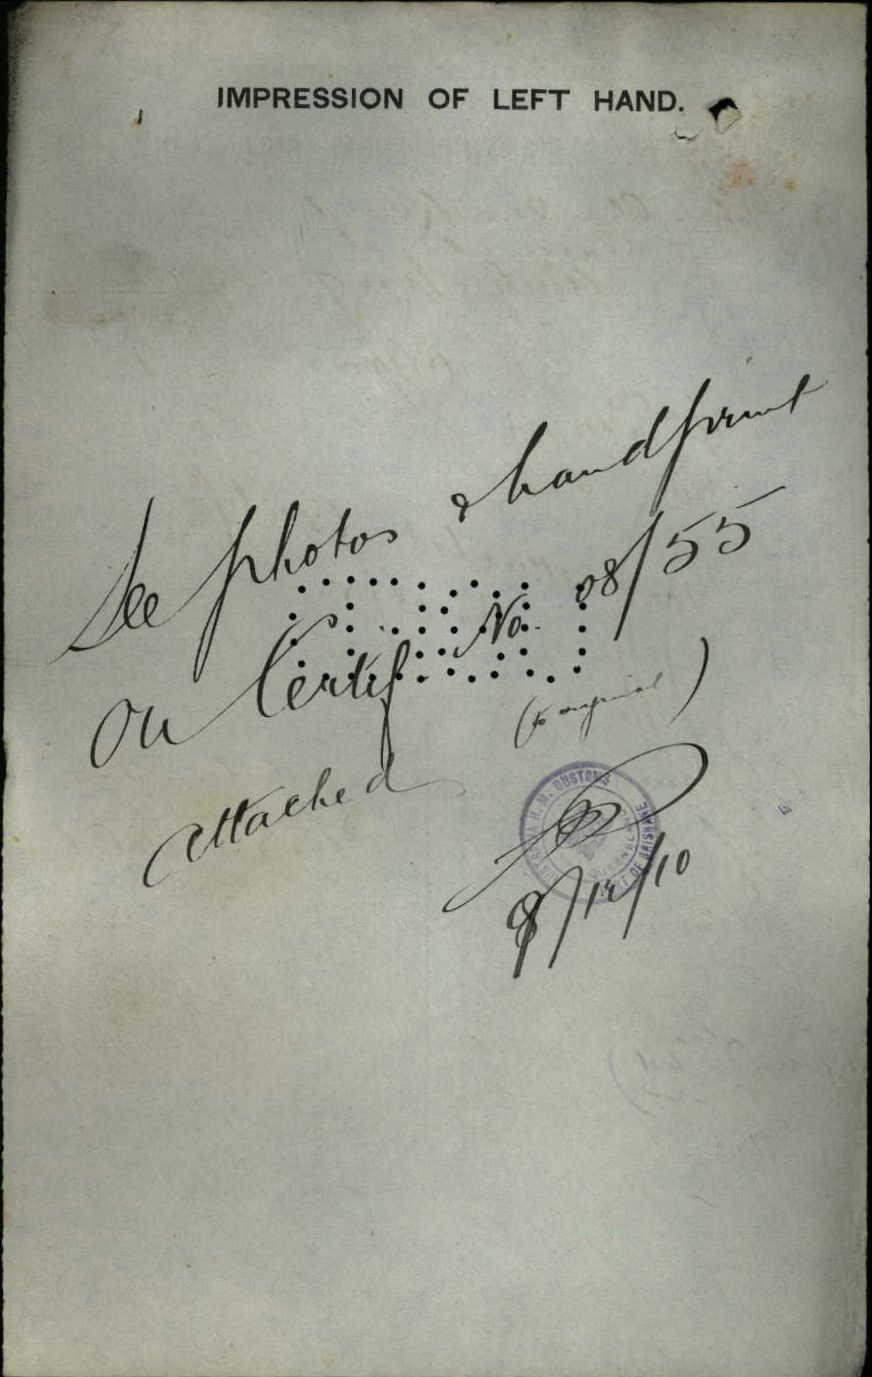 IMPRESSION OF LEFT HAND.
See photos & handprint
on Certif No. 08/55
attached (to original)
H. M. CUSTOMS
8/12/10